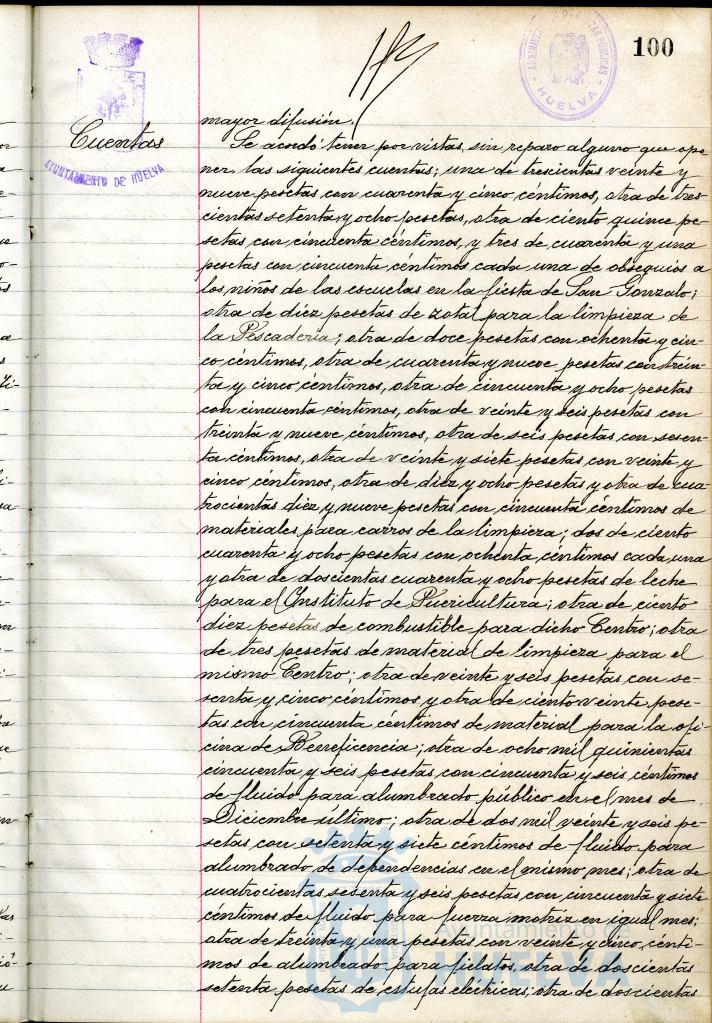 100
HUELVA
mayor difusión.
Cuentas
AYUNTAMIENTO DE HUELVA
Se acordó tener por vistas, sin reparo alguno que opo
ner, las siguientes cuentas; una de trescientas veinte y
nueve pesetas con cuarenta y cinco céntimos, otra de tres-
cientas setenta y ocho pesetas, otra de ciento quince pe-
setas con cincuenta céntimos, y tres de cuarenta y una
pesetas con cincuenta céntimos cada una de obsequios a
los niños de las escuelas en la fiesta de San Gonzalo;
otra de diez pesetas de zotal para la limpieza de
la Pescadería; otra de doce pesetas con ochenta y cin-
co céntimos, otra de cuarenta y nueve pesetas con trein-
ta y cinco céntimos, otra de cincuenta y ocho pesetas
con cincuenta céntimos, otra de veinte y seis pesetas con
treinta y nueve céntimos, otra de seis pesetas con sesen-
ta céntimos, otra de veinte y siete pesetas con veinte y
cinco céntimos, otra de diez y ocho pesetas y otra de cua-
trocientas diez y nueve pesetas con cincuenta céntimos de
materiales para carros de la limpieza; dos de ciento
cuarenta y ocho pesetas con ochenta céntimos cada una
y otra de doscientas cuarenta y ocho pesetas de leche
para el Instituto de Puericultura; otra de ciento
diez pesetas de combustible para dicho Centro; otra
de tres pesetas de material de limpieza para el
mismo Centro; otra de veinte y seis pesetas con se-
senta y cinco céntimos y otra de ciento veinte pese-
tas con cincuenta céntimos de material para la ofi-
cina de Beneficencia; otra de ocho mil quinientas
cincuenta y seis pesetas con cincuenta y seis céntimos
de fluido para alumbrado público en el mes de
Diciembre último; otra de dos mil veinte y seis pe-
setas con setenta y siete céntimos de fluido para
alumbrado de dependencias en el mismo mes; otra de
cuatrocientas sesenta y seis pesetas con cincuenta y siete
céntimos de fluido para fuerza motriz en igual mes;
otra de treinta y una pesetas con veinte y cinco cénti-
mos de alumbrado para fielatos, otra de doscientas
setenta pesetas de estufas eléctricas; otra de doscientas
Ayuntamiento de
HUELVA